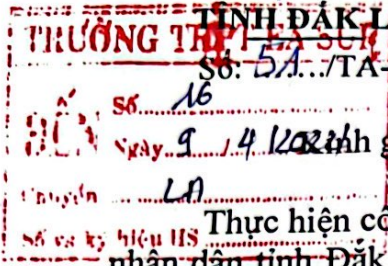 TỈNH ĐẮK L
TRƯỜNG THPT EA SUP
Số: 51.../TA-
ĐẾN
Số.... 16
Ngày.. 9 / 4 /
Kính g
Chuyển .... LĐ
Số và ký hiệu HS
Thực hiện cô
nhân dân tỉnh Đắk